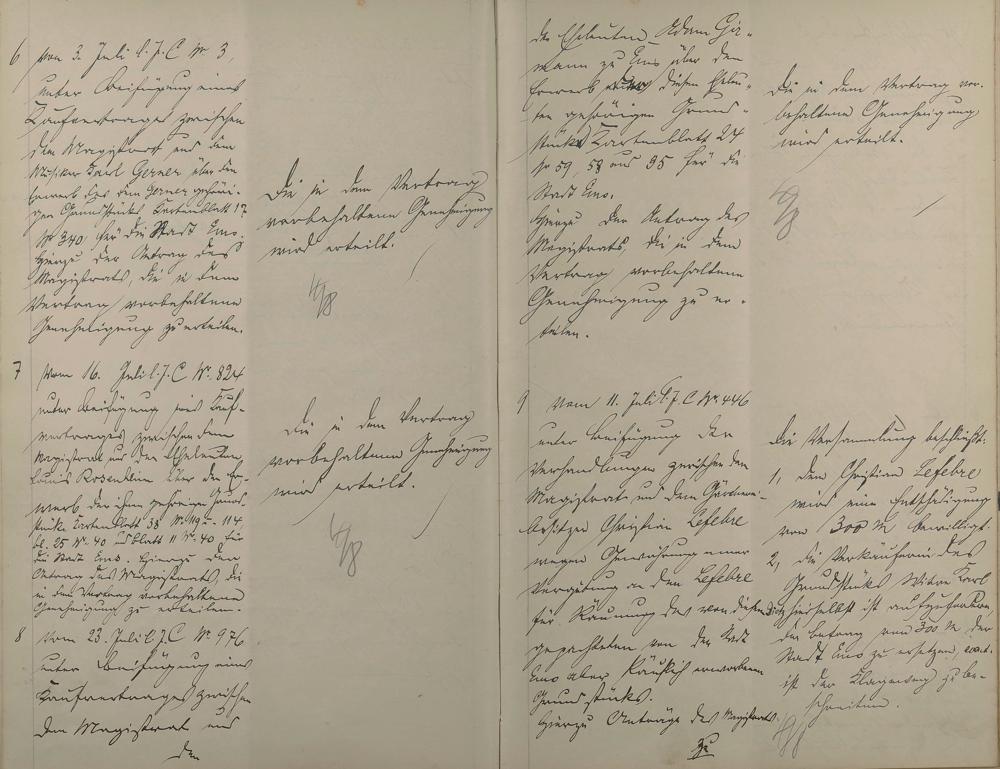 6 vom 3. Juli l. J. C № 3,
unter Beifügung eines
Kaufvertrages zwischen
dem Magistrat und dem
Musiker Karl Gerner über den
Erwerb des dem Gerner gehöri-
gen Grundstücks Kartenblatt 17
№ 340 für die Stadt Ems.
Hierzu der Antrag des
Magistrats, die in dem
Vertrag vorbehaltene
Genehmigung zu erteilen.
Die in dem Vertrag
vorbehaltene Genehmigung
wird erteilt.
7 vom 16. Juli l. J. C № 824
unter Beifügung eines Kauf-
vertrages zwischen dem
Magistrat und den Eheleuten
Louis Rosenblein über den Er-
werb der ihm gehörigen Grund-
stücke Kartenblatt 38 № 119 - 114
bl. 25 № 40 und blatt 11 № 40 für
die Stadt Ems. Hierzu der
Antrag des Magistrats, die
in dem Vertrag vorbehaltene
Genehmigung zu erteilen.
Die in dem Vertrag
vorbehaltene Genehmigung
wird erteilt.
8 vom 23. Juli l. J. C № 976
unter Beifügung eines
Kaufvertrages zwischen
dem Magistrat und
den
den Eheleuten Adam
zu Ems über den
Erwerb diesen Eheleu-
ten gehörigen Grund-
stücke Kartenblatt 24
№ 59, 58 und 35 für die
Stadt Ems.
Hierzu der Antrag des
Magistrats, die in dem
Vertrag vorbehaltene
Genehmigung zu er-
teilen.
Die in dem Vertrag vor-
behaltene Genehmigung
wird erteilt.
9 vom 11. Juli l. J. C № 446
unter Beifügung der
Verhandlungen zwischen dem
Magistrat und dem Gärtnerei-
besitzer Christian Lefebre
wegen Gewährung einer
Vergütung an den Lefebre
für Räumung des von diesem
gepachteten von der Stadt
Ems aber käuflich erworbenen
Grundstücks.
Hierzu Anträge des Magistrats
zu
Die Versammlung beschließt:
1, dem Christian Lefebre
wird eine Entschädigung
von 300 M bewilligt.
2, die Verkäuferin des
Grundstücks Witwe Karl
hierselbst ist aufzufordern,
den Betrag von 300 M der
Stadt Ems zu ersetzen, event.
ist der Klageweg zu be-
schreiten.